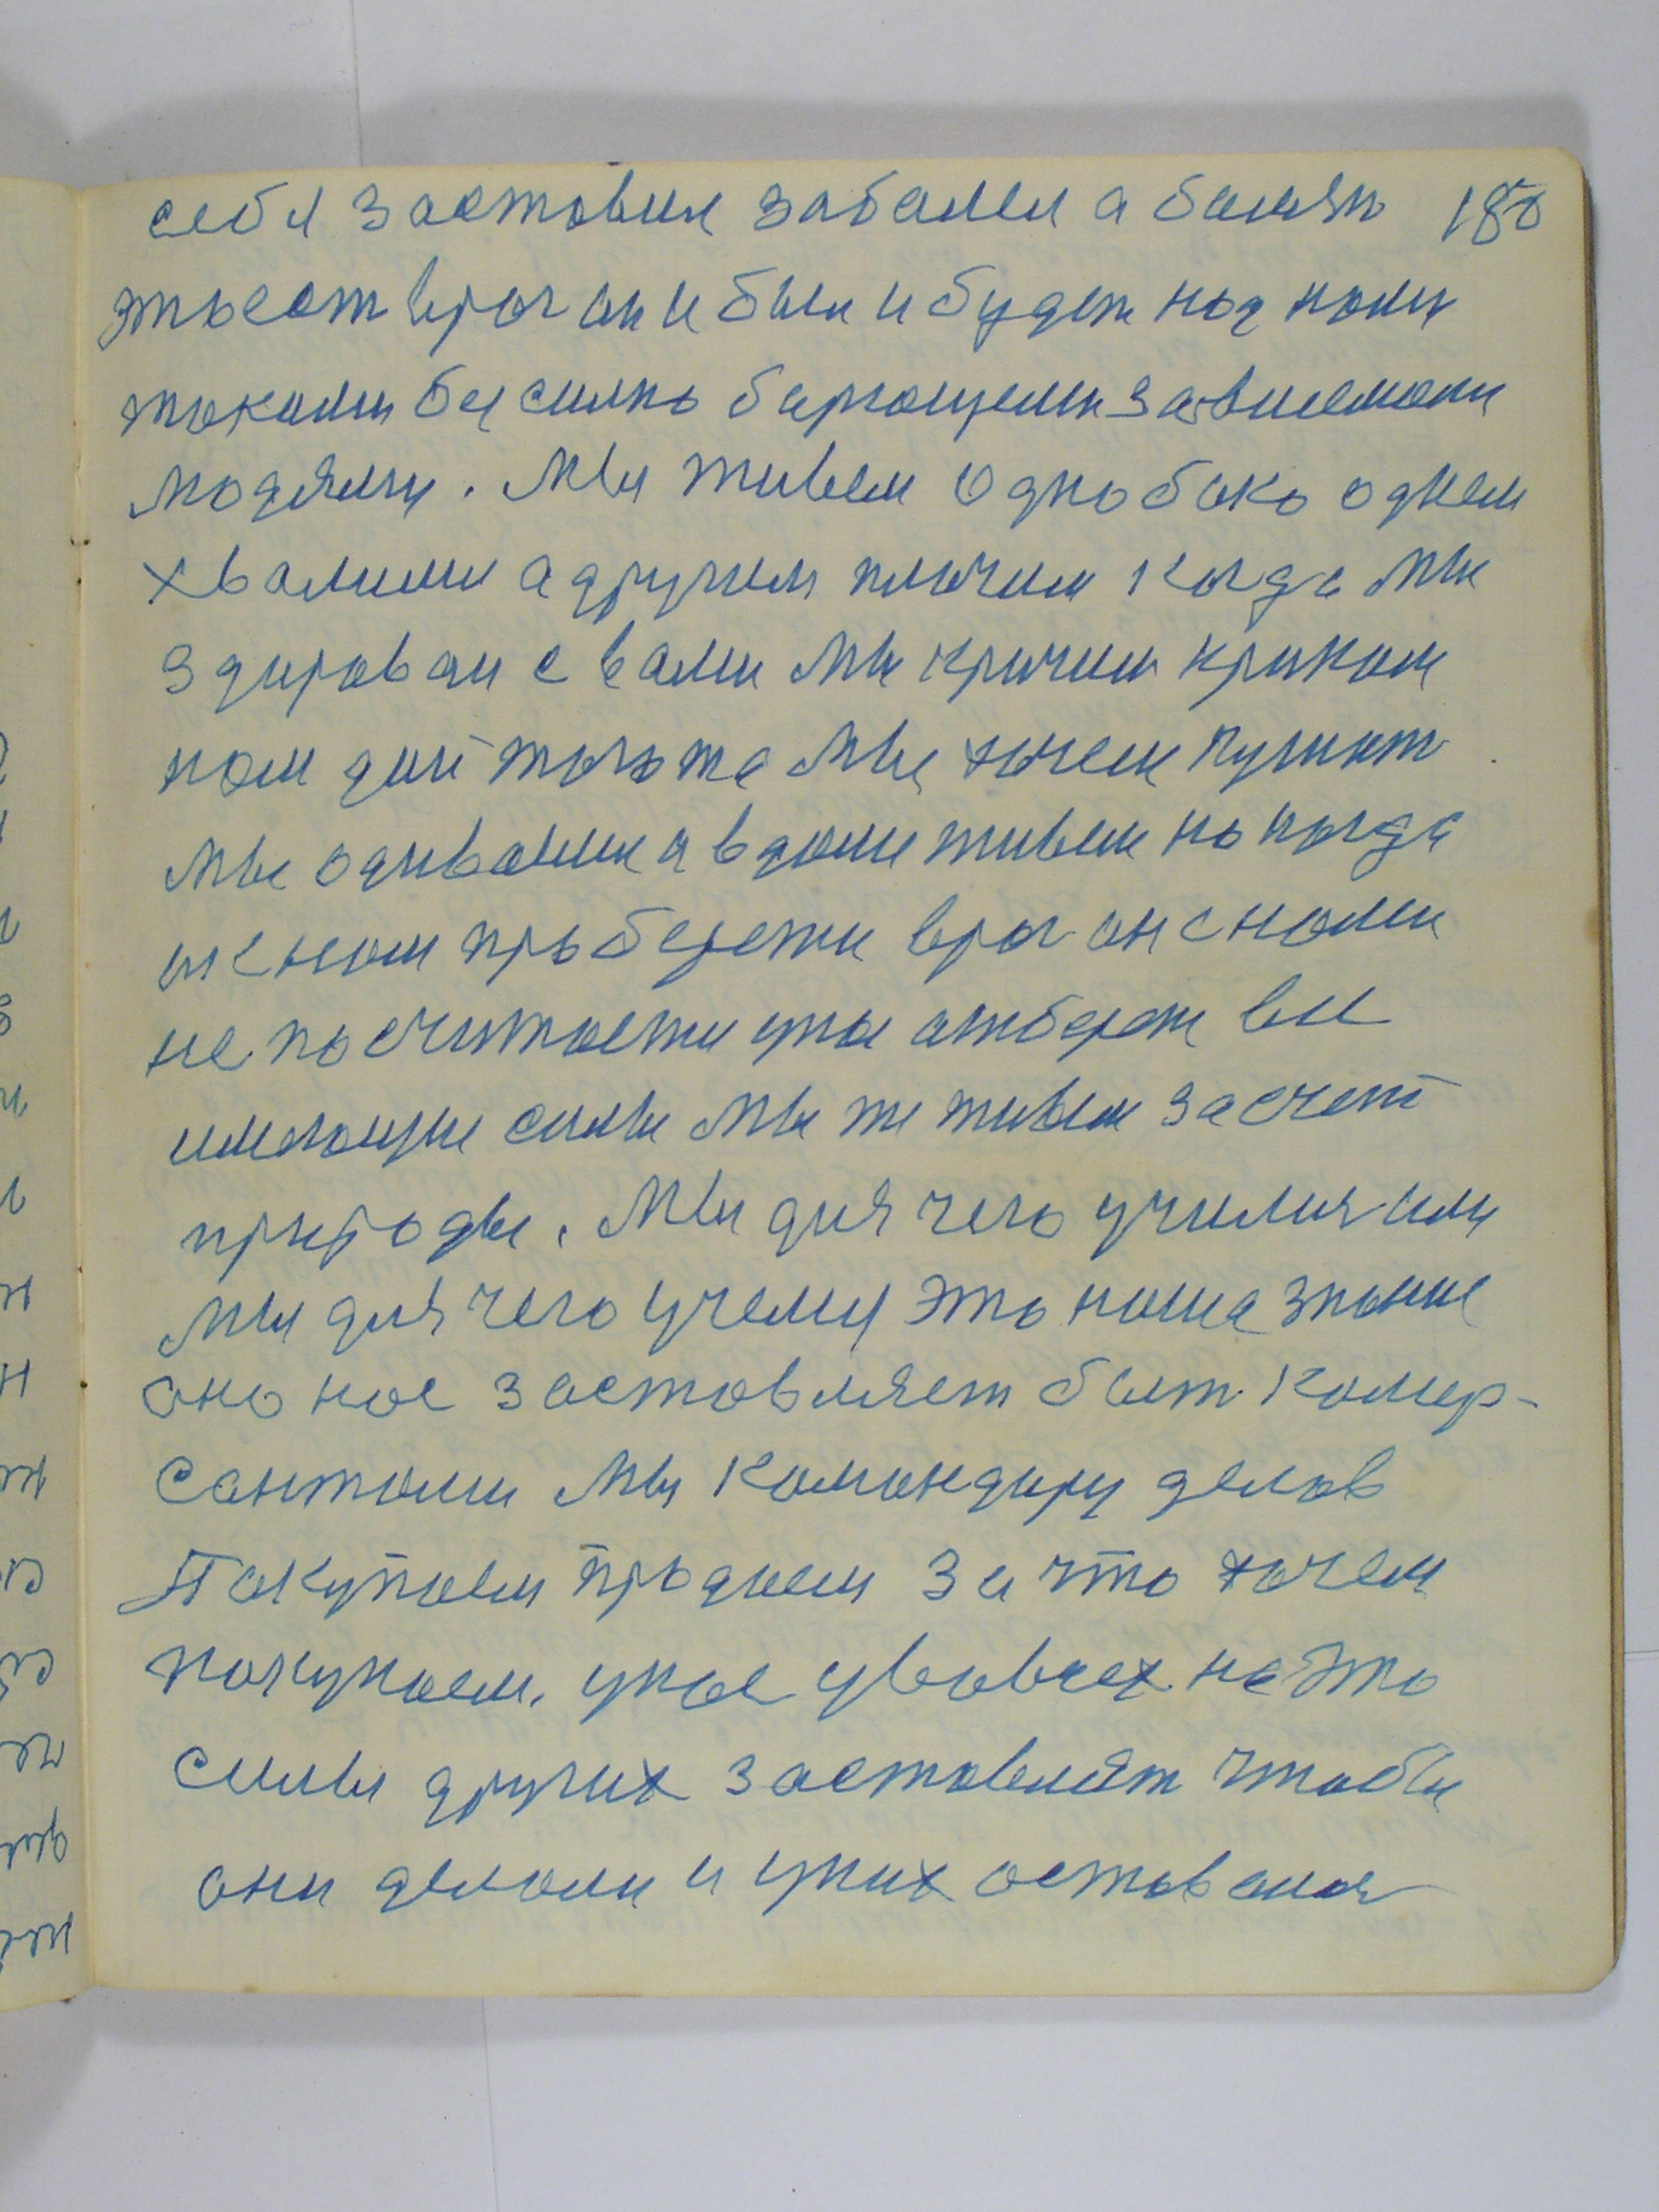 себя заставил заболел а болезн 180
это ест враг он и был и будет над нами
такими бесилно бириющеми зависемоми
людями. Мы живем однобоко однем
хвалими а другим плачим когда мы
здировои с вами мы кричим криком
нам дай того то мы хочем кушат
мы одиваими и в доми живем но когда
ик нам прыбережи враг он с нами
не посчитаети уны отберет вси
имеющие силы мы жи живем за счет
природы. Мы для чего училися или
мы для чего учемы это наша знание
оно нас заставляет быт комер-
сантоми мы командиры делов
Покупаем продаем за что хочем
покупаем. унас увовсех на это
силы других заставляят чтобы
они делали и уних оставался